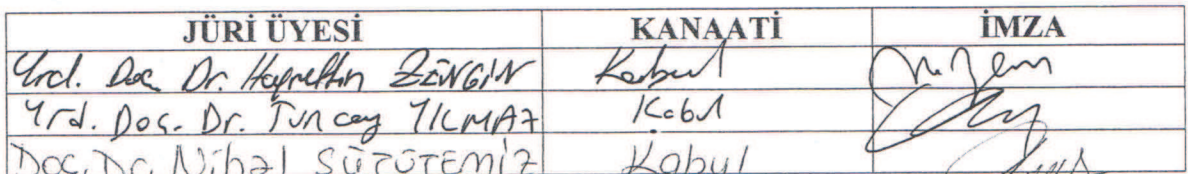 JÜRİ ÜYESİ KANAATİ İMZA
Yrd. Doç. Dr. Hayrettin ZENGİN Kabul
Yrd. Doç. Dr. Tuncay YILMAZ Kabul
Doç. Dr. Nihal SÜTÜTEMİZ Kabul